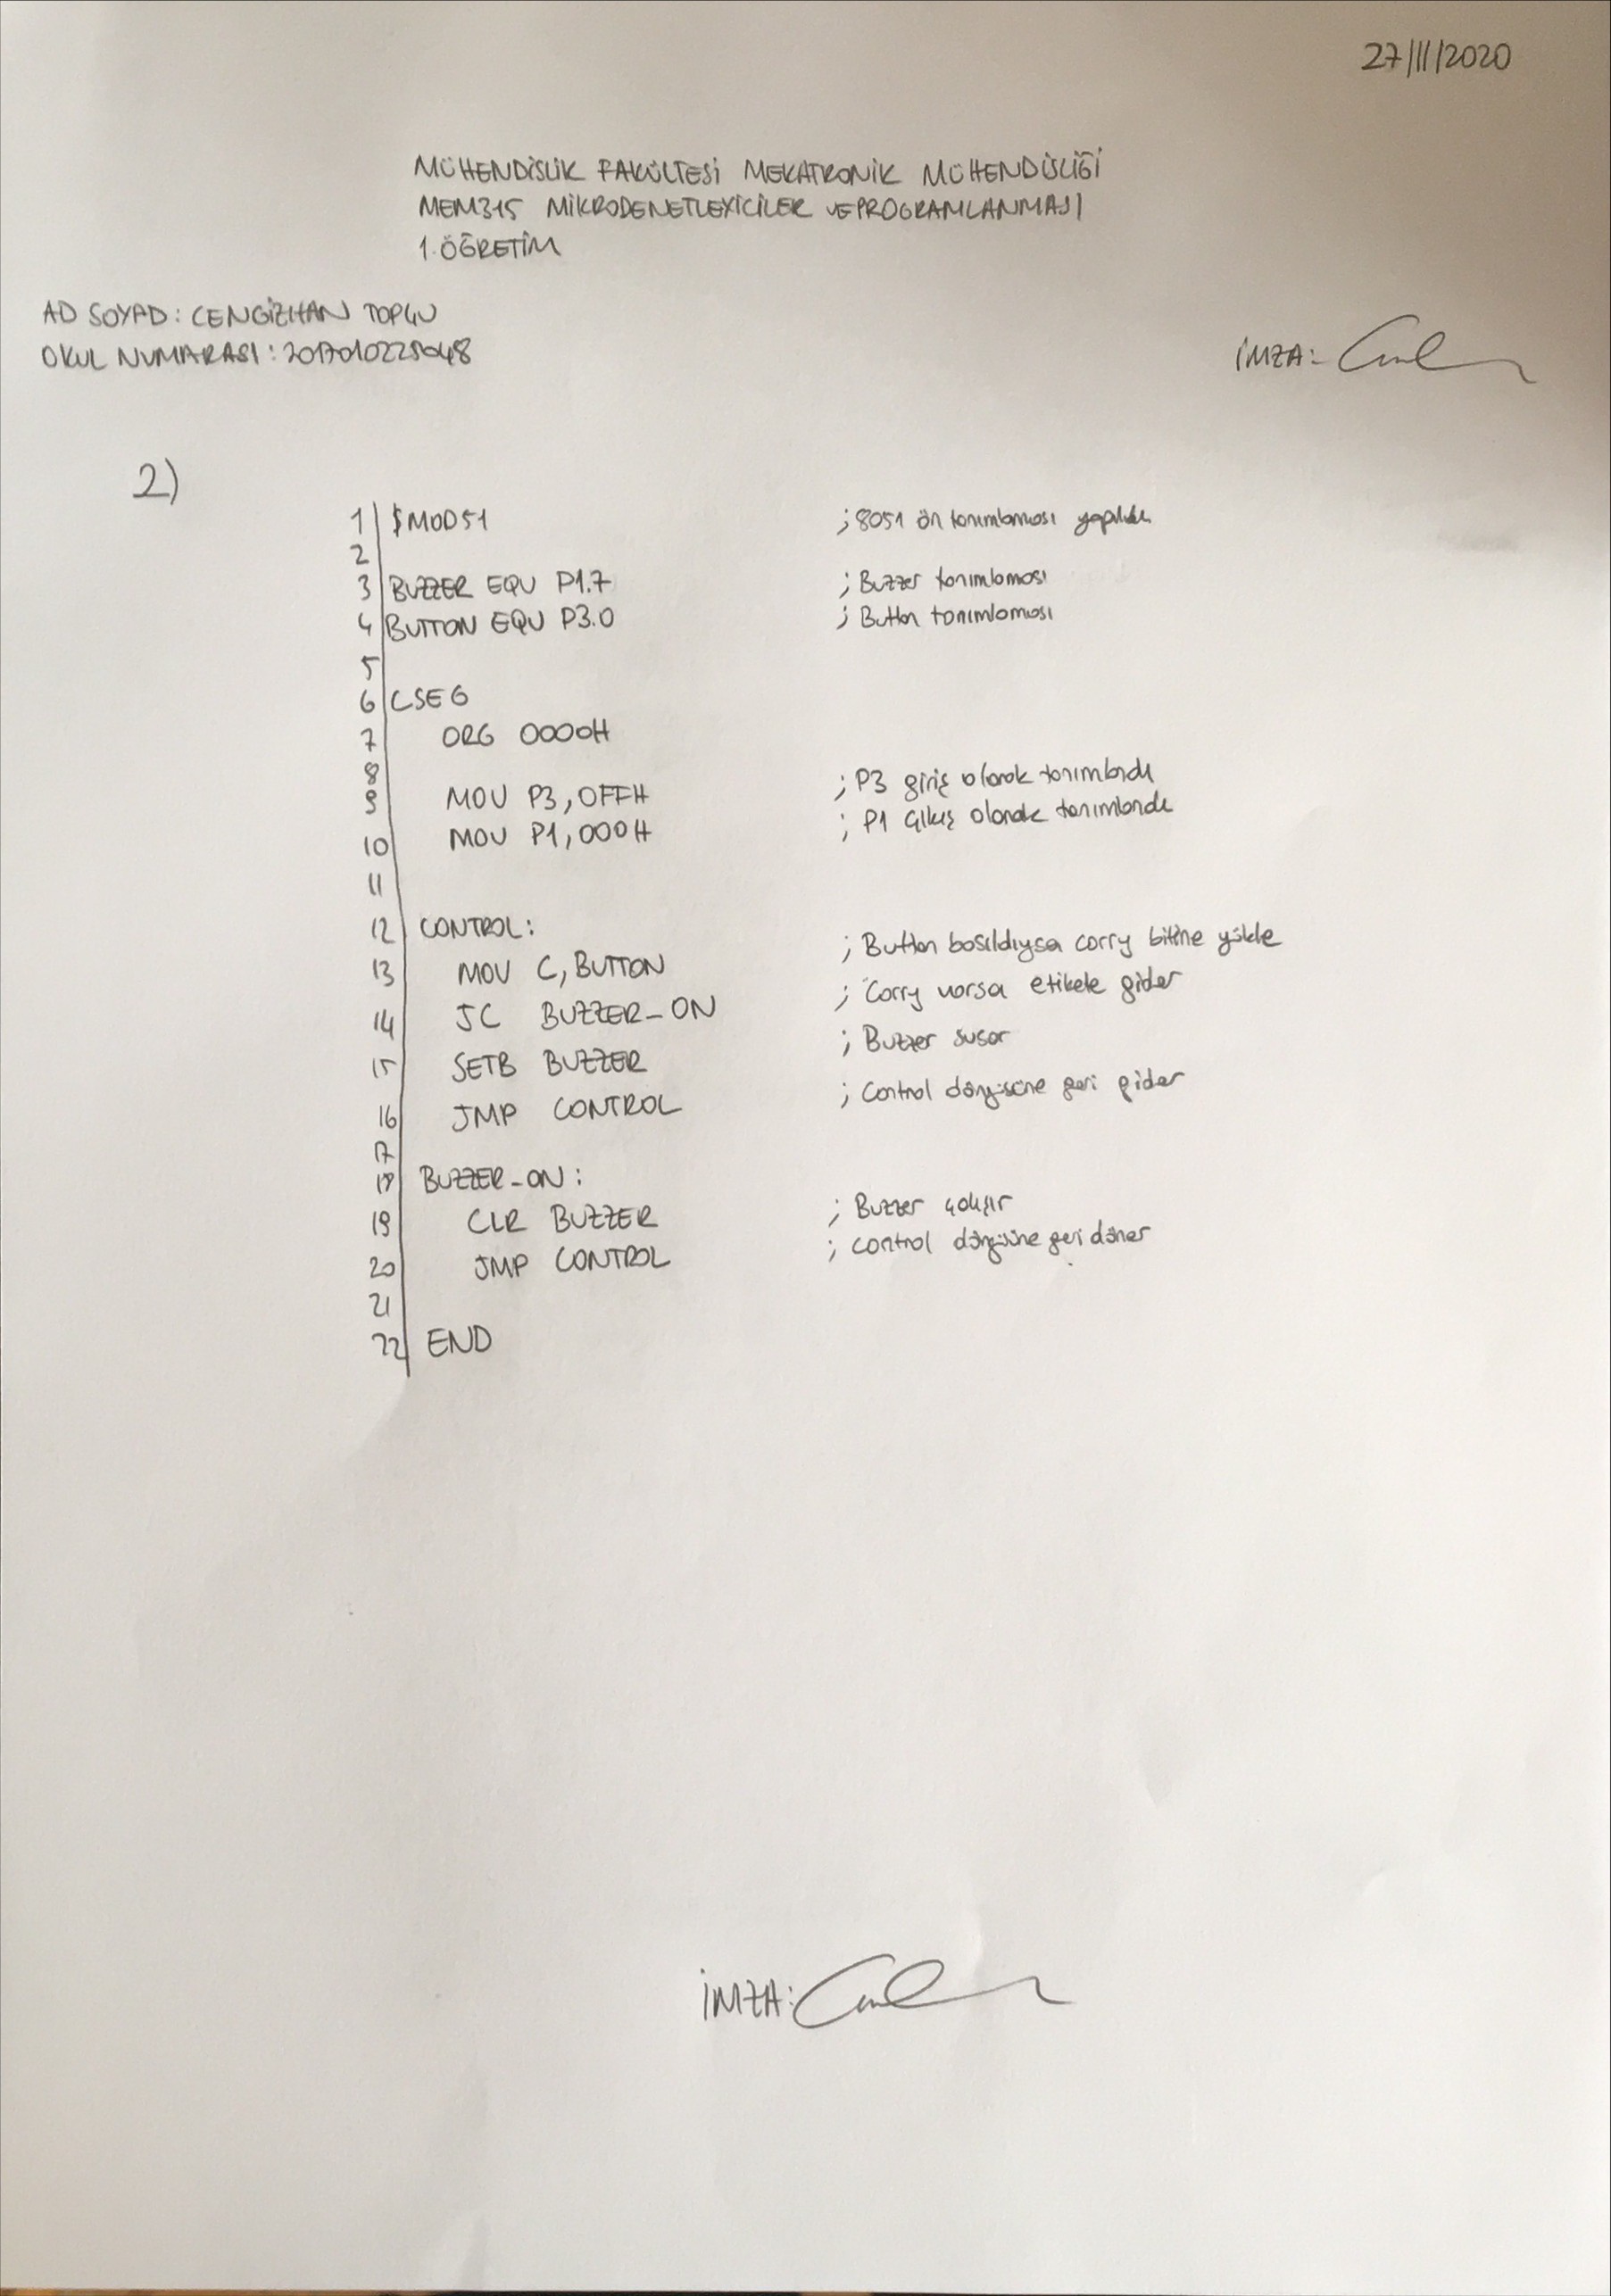 27/11/2020
MÜHENDİSLİK FAKÜLTESİ MEKATRONİK MÜHENDİSLİĞİ
MEM315 MİKRODENETLEYİCİLER VE PROGRAMLANMASI
1.ÖĞRETİM
AD SOYAD: CENGİZHAN TOPÇU
OKUL NUMARASI: İMZA:
2)
1 $MOD51 ;8051 ön tanımlaması yapıldı
2
3 BUZZER EQU P1.7 ; Buzzer tanımlaması
4 BUTTON EQU P3.0 ; Button tanımlaması
5
6 CSEG
7 ORG 0000H
8
9 MOV P3,0FFH ; P3 giriş olarak tanımlandı
10 MOV P1,000H ; P1 çıkış olarak tanımlandı
11
12 CONTROL:
13 MOV C, BUTTON ; Button basıldıysa carry bitine yükle
14 JC BUZZER_ON ; Carry varsa etikete gider
15 SETB BUZZER ; Buzzer susar
16 JMP CONTROL ; Control döngüsüne geri gider
17
18 BUZZER_ON:
19 CLR BUZZER ; Buzzer çalışır
20 JMP CONTROL ; control döngüsüne geri döner
21
22 END
İMZA: